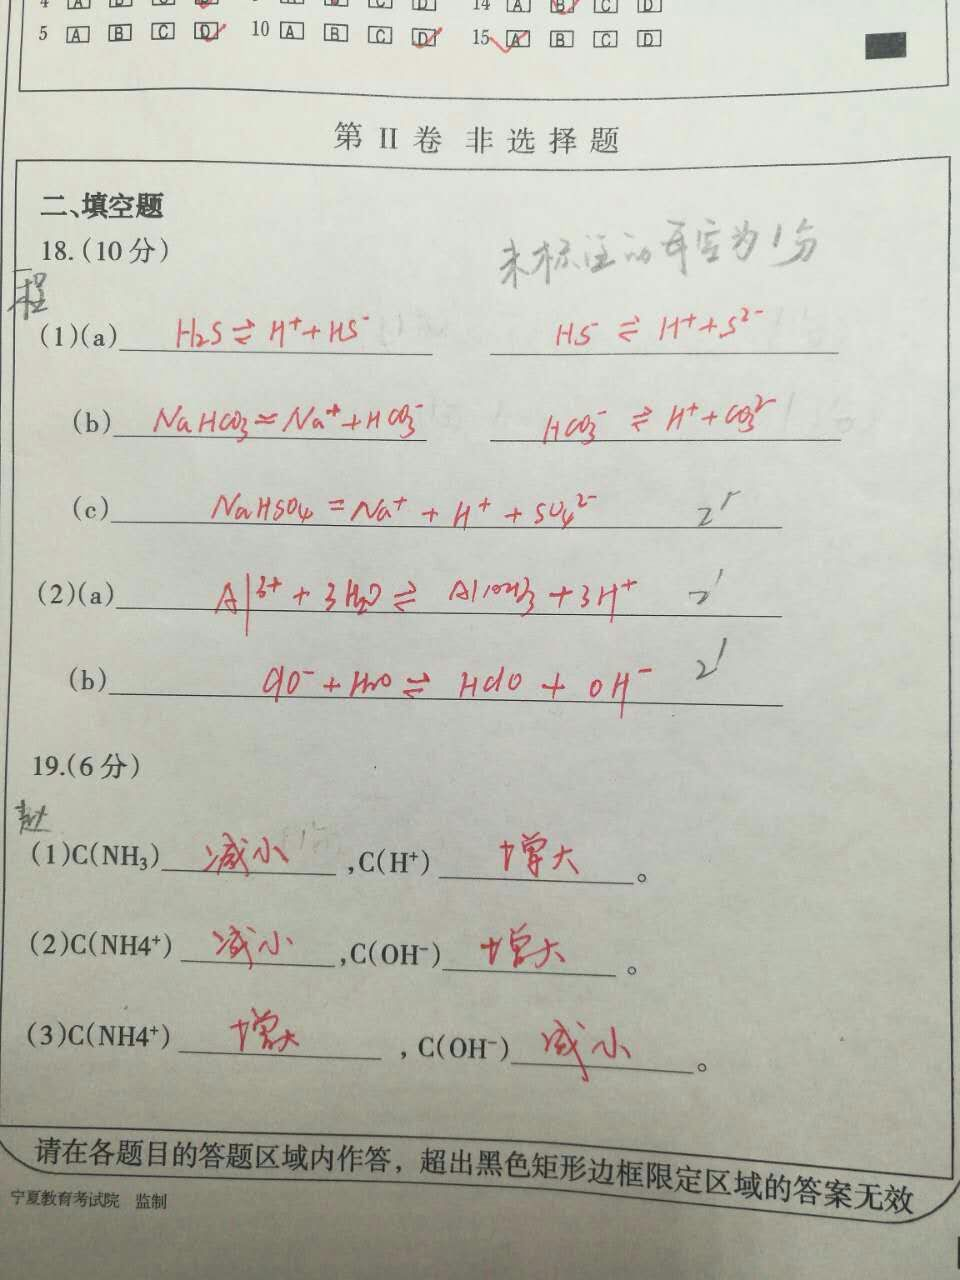 4 A B C D A B C D 14 A B C D
5 A B C D 10 A B C D 15 A B C D
第 II 卷 非 选 择 题
二、填空题
18.(10分)
未标注的每空为1分
程
(1)(a) H₂S ⇌ H⁺ + HS⁻ HS⁻ ⇌ H⁺ + S²⁻
(b) NaHCO₃ = Na⁺ + HCO₃⁻ HCO₃⁻ ⇌ H⁺ + CO₃²⁻
(c) NaHSO₄ = Na⁺ + H⁺ + SO₄²⁻ 2'
(2)(a) Al³⁺ + 3H₂O ⇌ Al(OH)₃ + 3H⁺ 2'
(b) ClO⁻ + H₂O ⇌ HClO + OH⁻ 2'
19.(6分)
赵
(1)C(NH₃) 减小 ,C(H⁺) 增大 。
(2)C(NH4⁺) 减小 ,C(OH⁻) 增大 。
(3)C(NH4⁺) 增大 ,C(OH⁻) 减小 。
请在各题目的答题区域内作答，超出黑色矩形边框限定区域的答案无效
宁夏教育考试院 监制